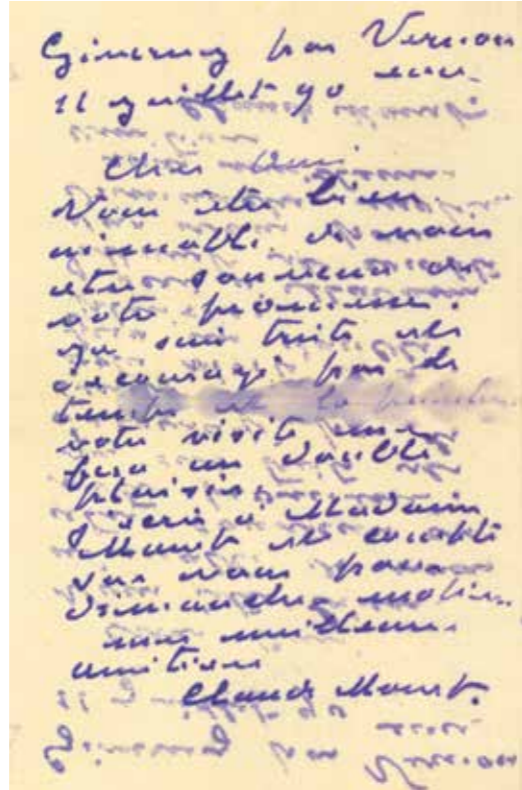 Giverny par Vernon
11 juillet 90 eure.
Cher Ami
Vous êtes bien
aimable de vous
être souvenu de
votre promesse.
je suis triste et
découragé par
temps et la
votre visite me
fera un double
plaisir.
J'écris à Madame
Manet et compte
sur vous pour
dimanche matin.
mes meilleures
amitiés
Claude Monet.